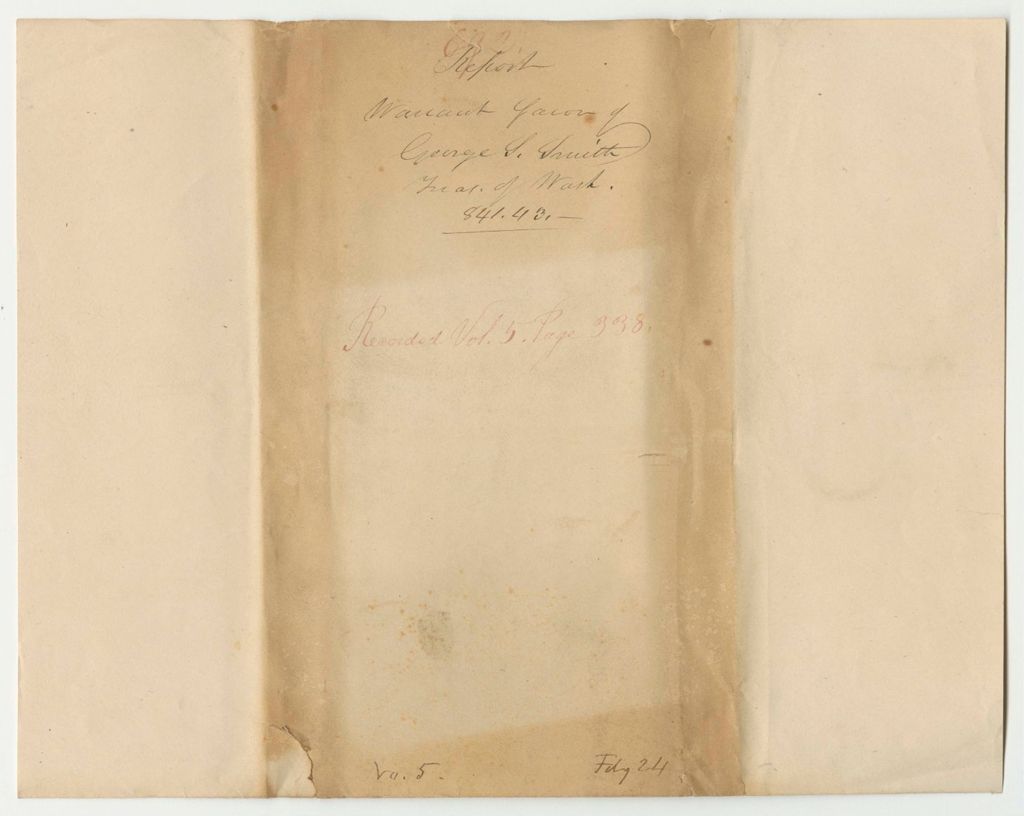 Report
Warrant favor of
George S. Smith
Treas. of Wash.
841.43.—
Recorded Vol. 5. Page 338.
Vo. 5.
Fdg 24